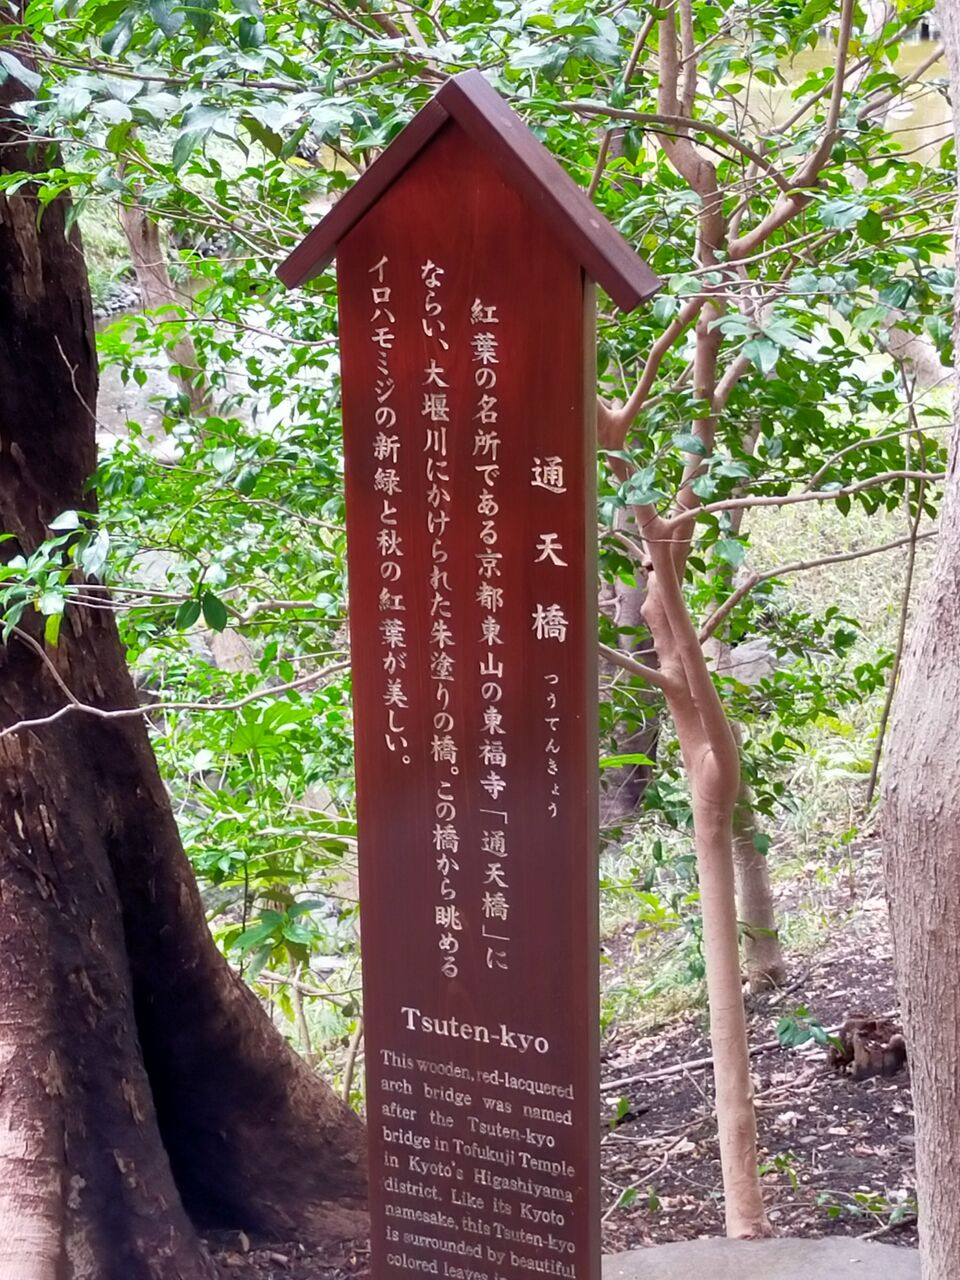 通天橋 つうてんきょう
紅葉の名所である京都東山の東福寺「通天橋」に
ならい、大堰川にかけられた朱塗りの橋。この橋から眺める
イロハモミジの新緑と秋の紅葉が美しい。
Tsuten-kyo
This wooden, red-lacquered
arch bridge was named
after the Tsuten-kyo
bridge in Tofukuji Temple
in Kyoto's Higashiyama
district. Like its Kyoto
namesake, this Tsuten-kyo
is surrounded by beautiful
colored leaves